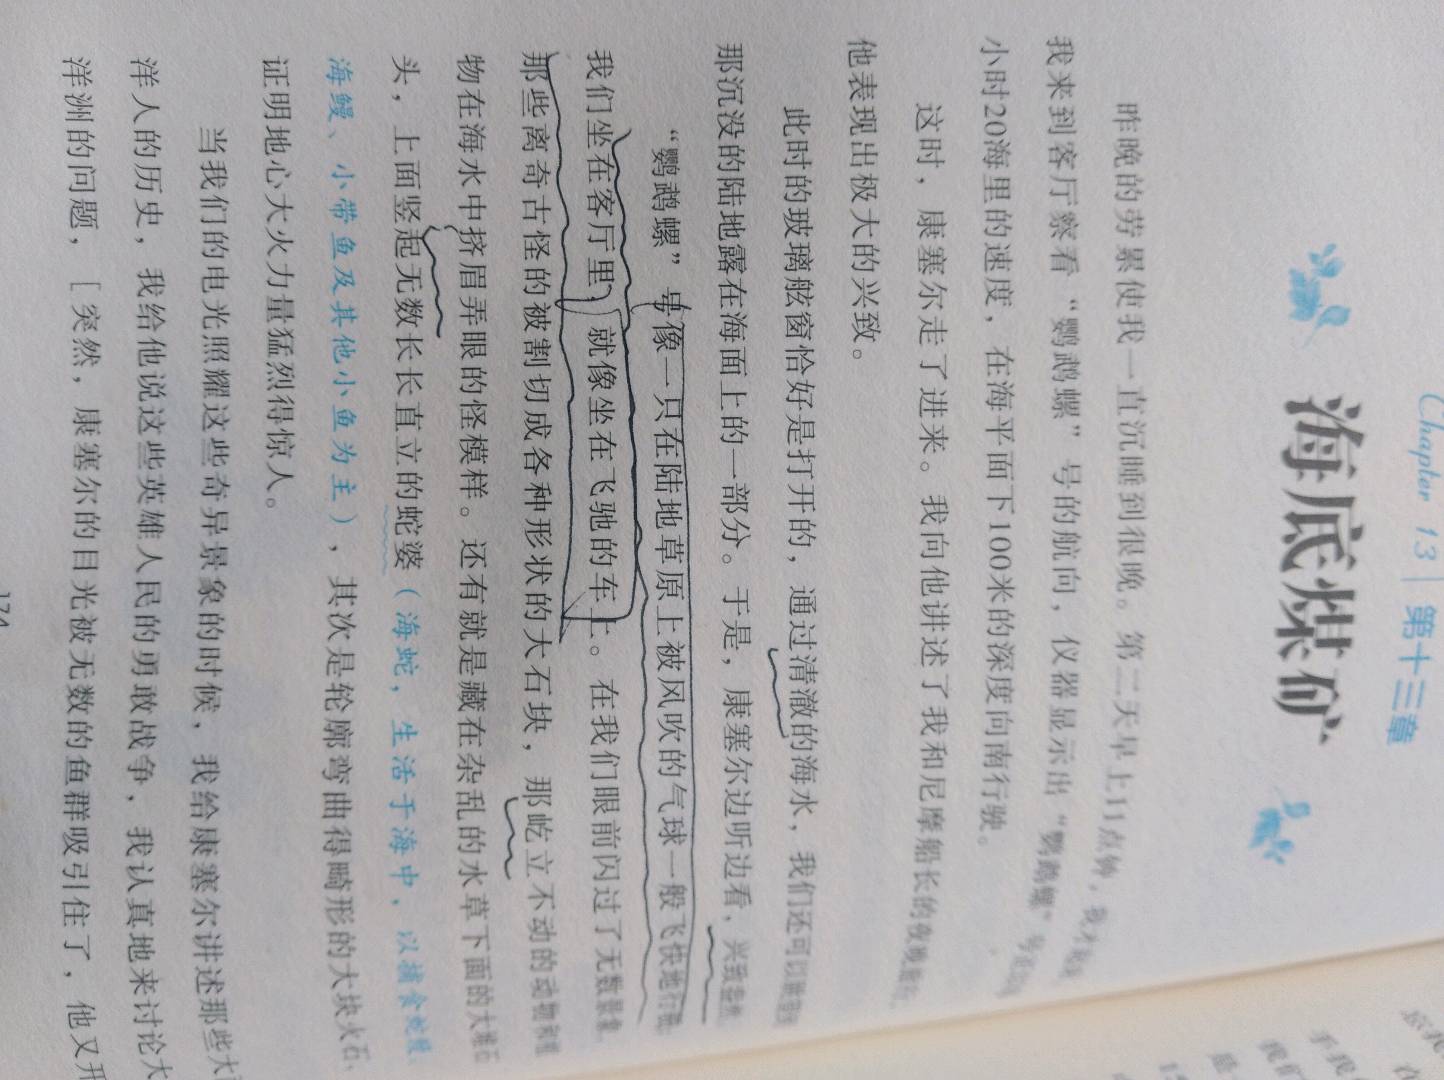 Chapter 13 | 第十三章
海底煤矿
昨晚的劳累使我一直沉睡到很晚。第二天早上11点钟，我才起床
我来到客厅察看“鹦鹉螺”号的航向，仪器显示出“鹦鹉螺”号
小时20海里的速度，在海平面下100米的深度向南行驶。
这时，康塞尔走了进来。我向他讲述了我和尼摩船长的夜晚
他表现出极大的兴致。
此时的玻璃舷窗恰好是打开的，通过清澈的海水，我们还可以
那沉没的陆地露在海面上的一部分。于是，康塞尔边听边看，兴致盎然。
“鹦鹉螺”号像一只在陆地草原上被风吹的气球一般飞快地行驶，
我们坐在客厅里，就像坐在飞驰的车上。在我们眼前闪过了无数景象，
那些离奇古怪的被割切成各种形状的大石块，那屹立不动的动物和植
物在海水中挤眉弄眼的怪模样。还有就是藏在杂乱的水草下面的大堆石
头，上面竖起无数长长直立的蛇婆（海蛇，生活于海中，以捕食蛇鳗、
海鳗、小带鱼及其他小鱼为主），其次是轮廓弯曲得畸形的大块火石，
证明地心大火力量猛烈得惊人。
当我们的电光照耀这些奇异景象的时候，我给康塞尔讲述那些大西
洋人的历史，我给他说这些英雄人民的勇敢战争，我认真地来讨论大
洋洲的问题，[突然，康塞尔的目光被无数的鱼群吸引住了，他又开
174